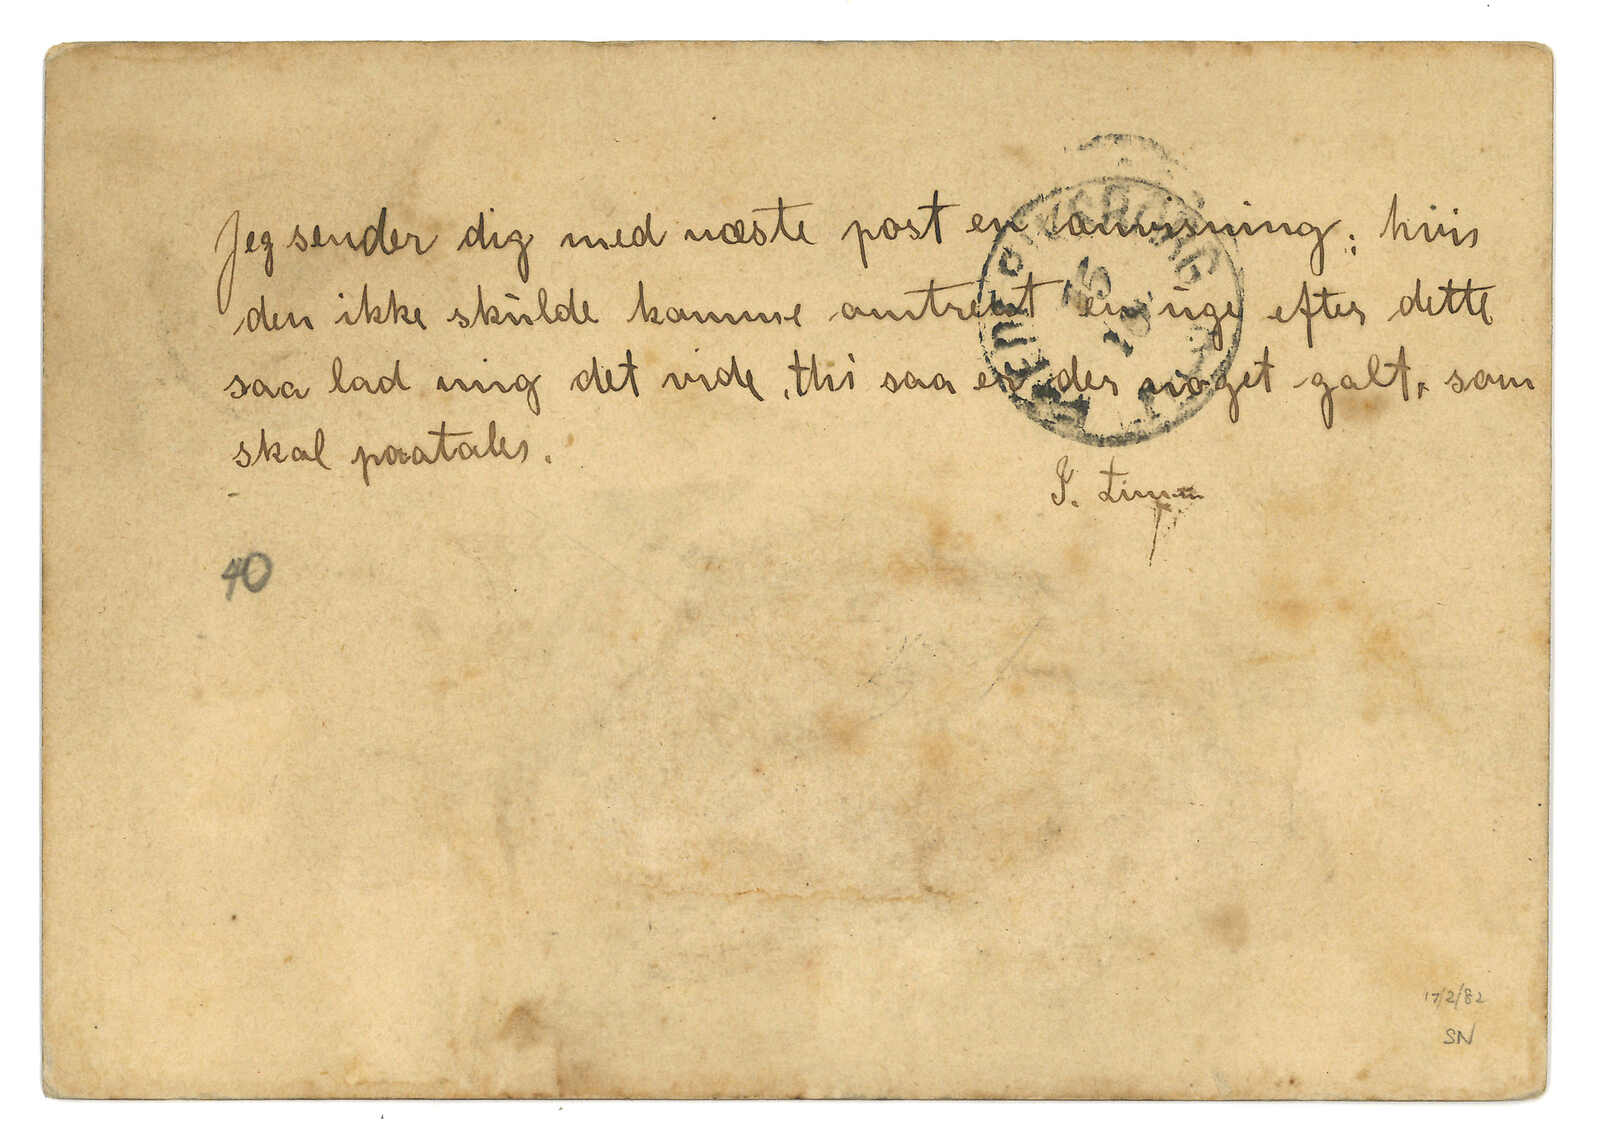 Jeg sender dig med næste post en anvisning; hvis
den ikke skulde komme omtrent en uge efter dette
saa lad mig det vide, thi saa er der noget galt, som
skal paatales.
40
17/2/82
SN